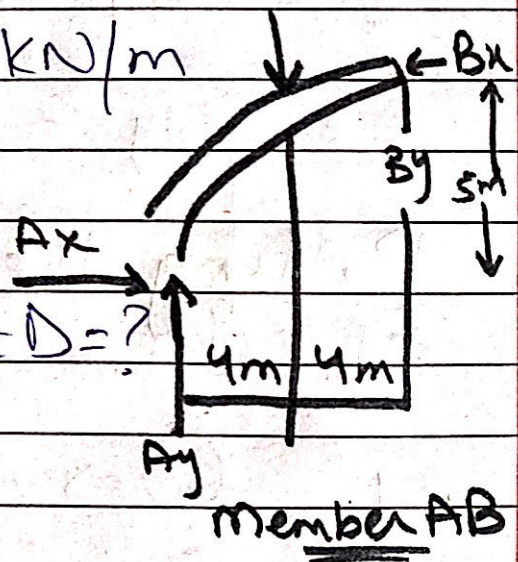 KN/m
← Bx
By
5m
Ax
D=?
4m 4m
Ay
Member AB